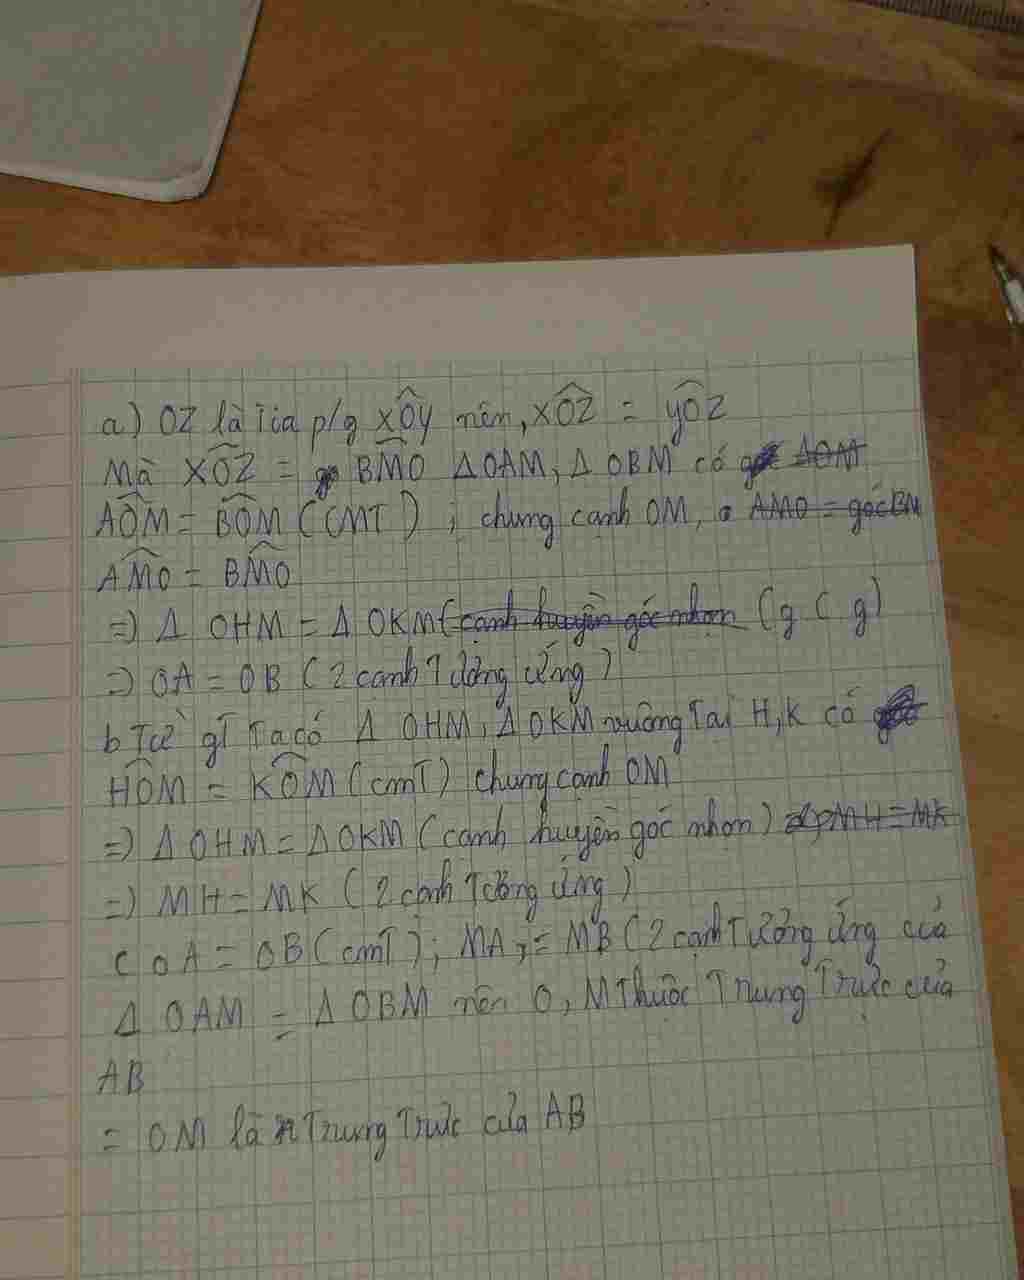 a) OZ là Tia p/g xÔy nên, xÔz = yÔz
Mà xÔz = BM̂O ΔOAM, ΔOBM có
AÔM = BÔM (CMT) ; chung cạnh OM,
AM̂O = BM̂O
=) Δ OHM = Δ OKM (g c g)
=) OA = OB (2 cạnh Tương ứng)
b Từ gT Ta có Δ OHM, Δ OKM vuông Tại H, K có
HÔM = KÔM (cmT) chung cạnh OM
=) Δ OHM = ΔOKM (cạnh huyền góc nhọn)
=) MH = MK (2 cạnh Tương ứng)
c OA = OB (cmT); MA = MB (2 cạnh Tương ứng của
Δ OAM = Δ OBM nên O, M Thuộc Trung Trực của
AB
= OM là Trung Trực của AB